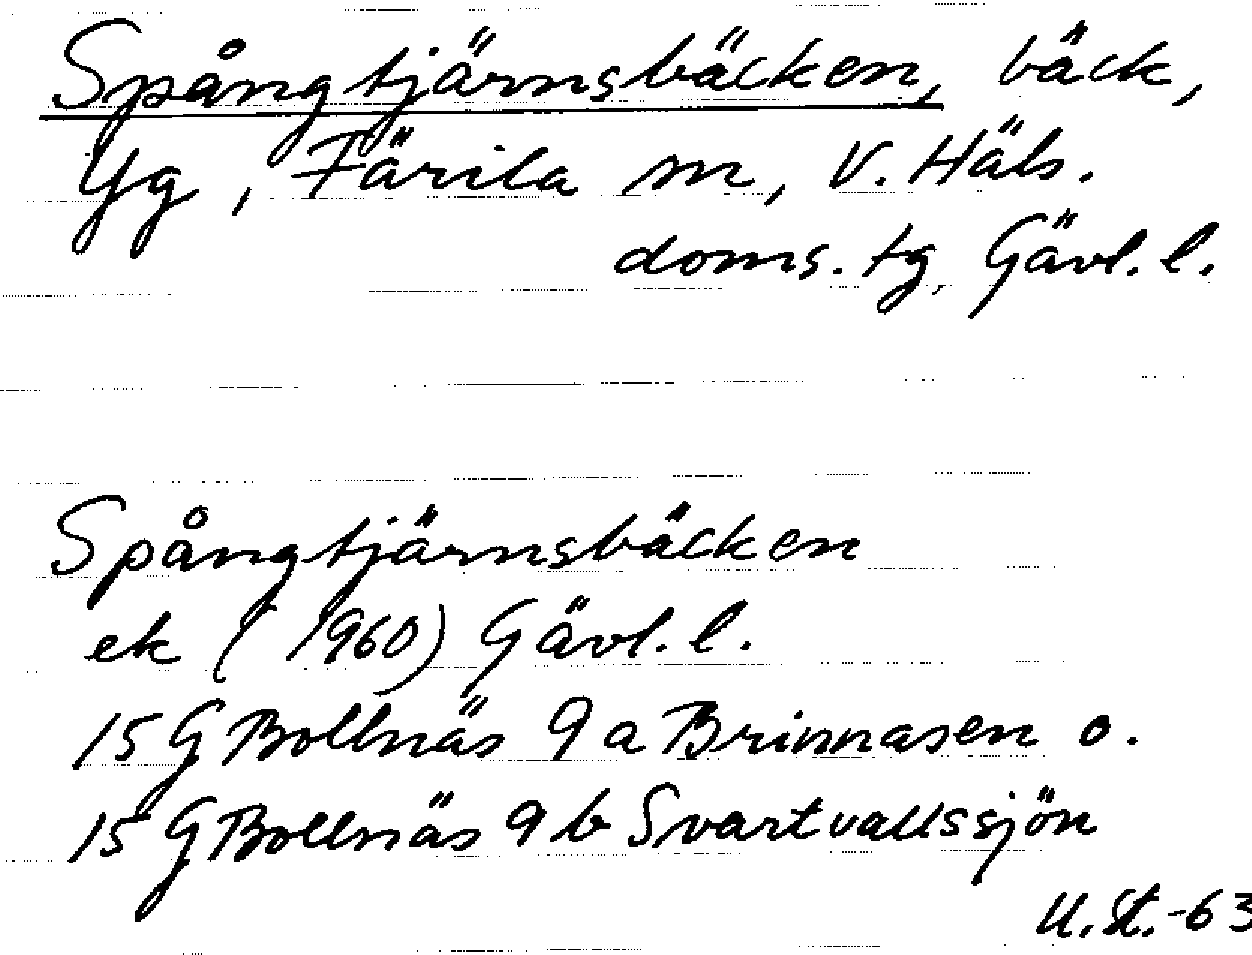 Spångtjärnsbäcken, bäck,
Yg, Färila sn, V. Häls.
doms. tg, Gävl. l.
Spångtjärnsbäcken
ek (1960) Gävl. l.
15 G Bollnäs 9 a Brinnasen o.
15 G Bollnäs 9 b Svartvallssjön
U. St. -63